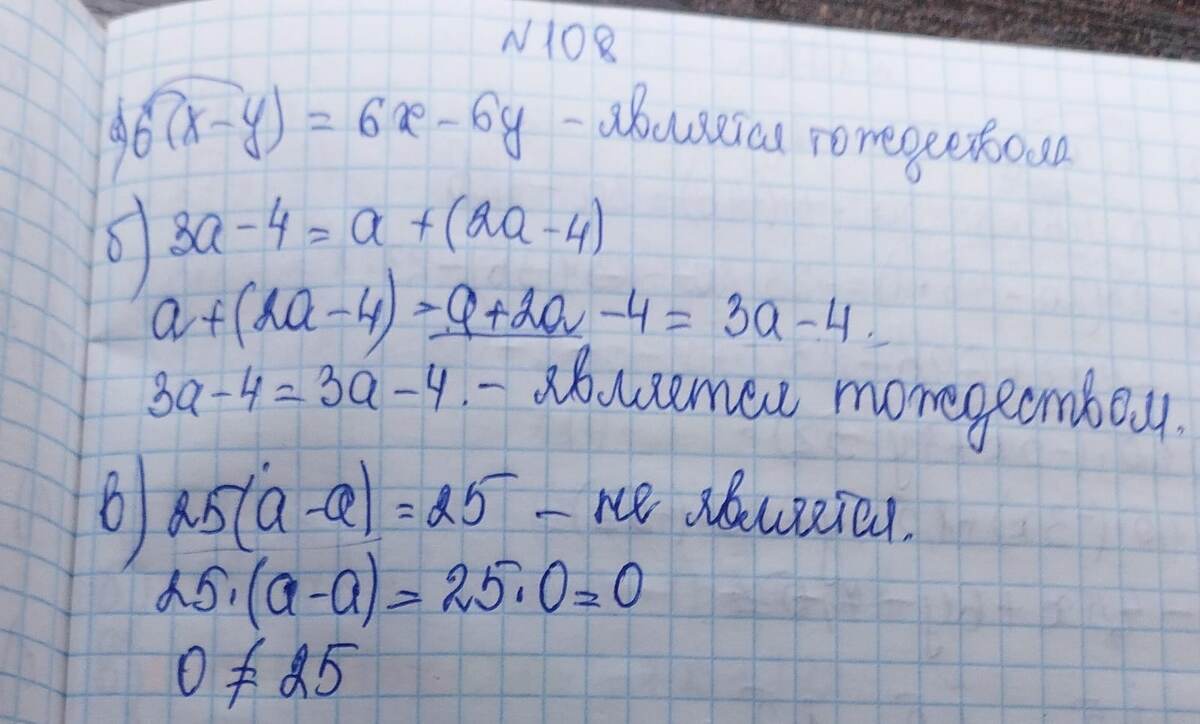 №108
а) 6(x-y) = 6x - 6y - является тождеством
б) 3a - 4 = a + (2a - 4)
a + (2a - 4) = a + 2a - 4 = 3a - 4.
3a - 4 = 3a - 4. - является тождеством.
в) 25(a - a) = 25 - не является.
25·(a - a) = 25·0 = 0
0 ≠ 25